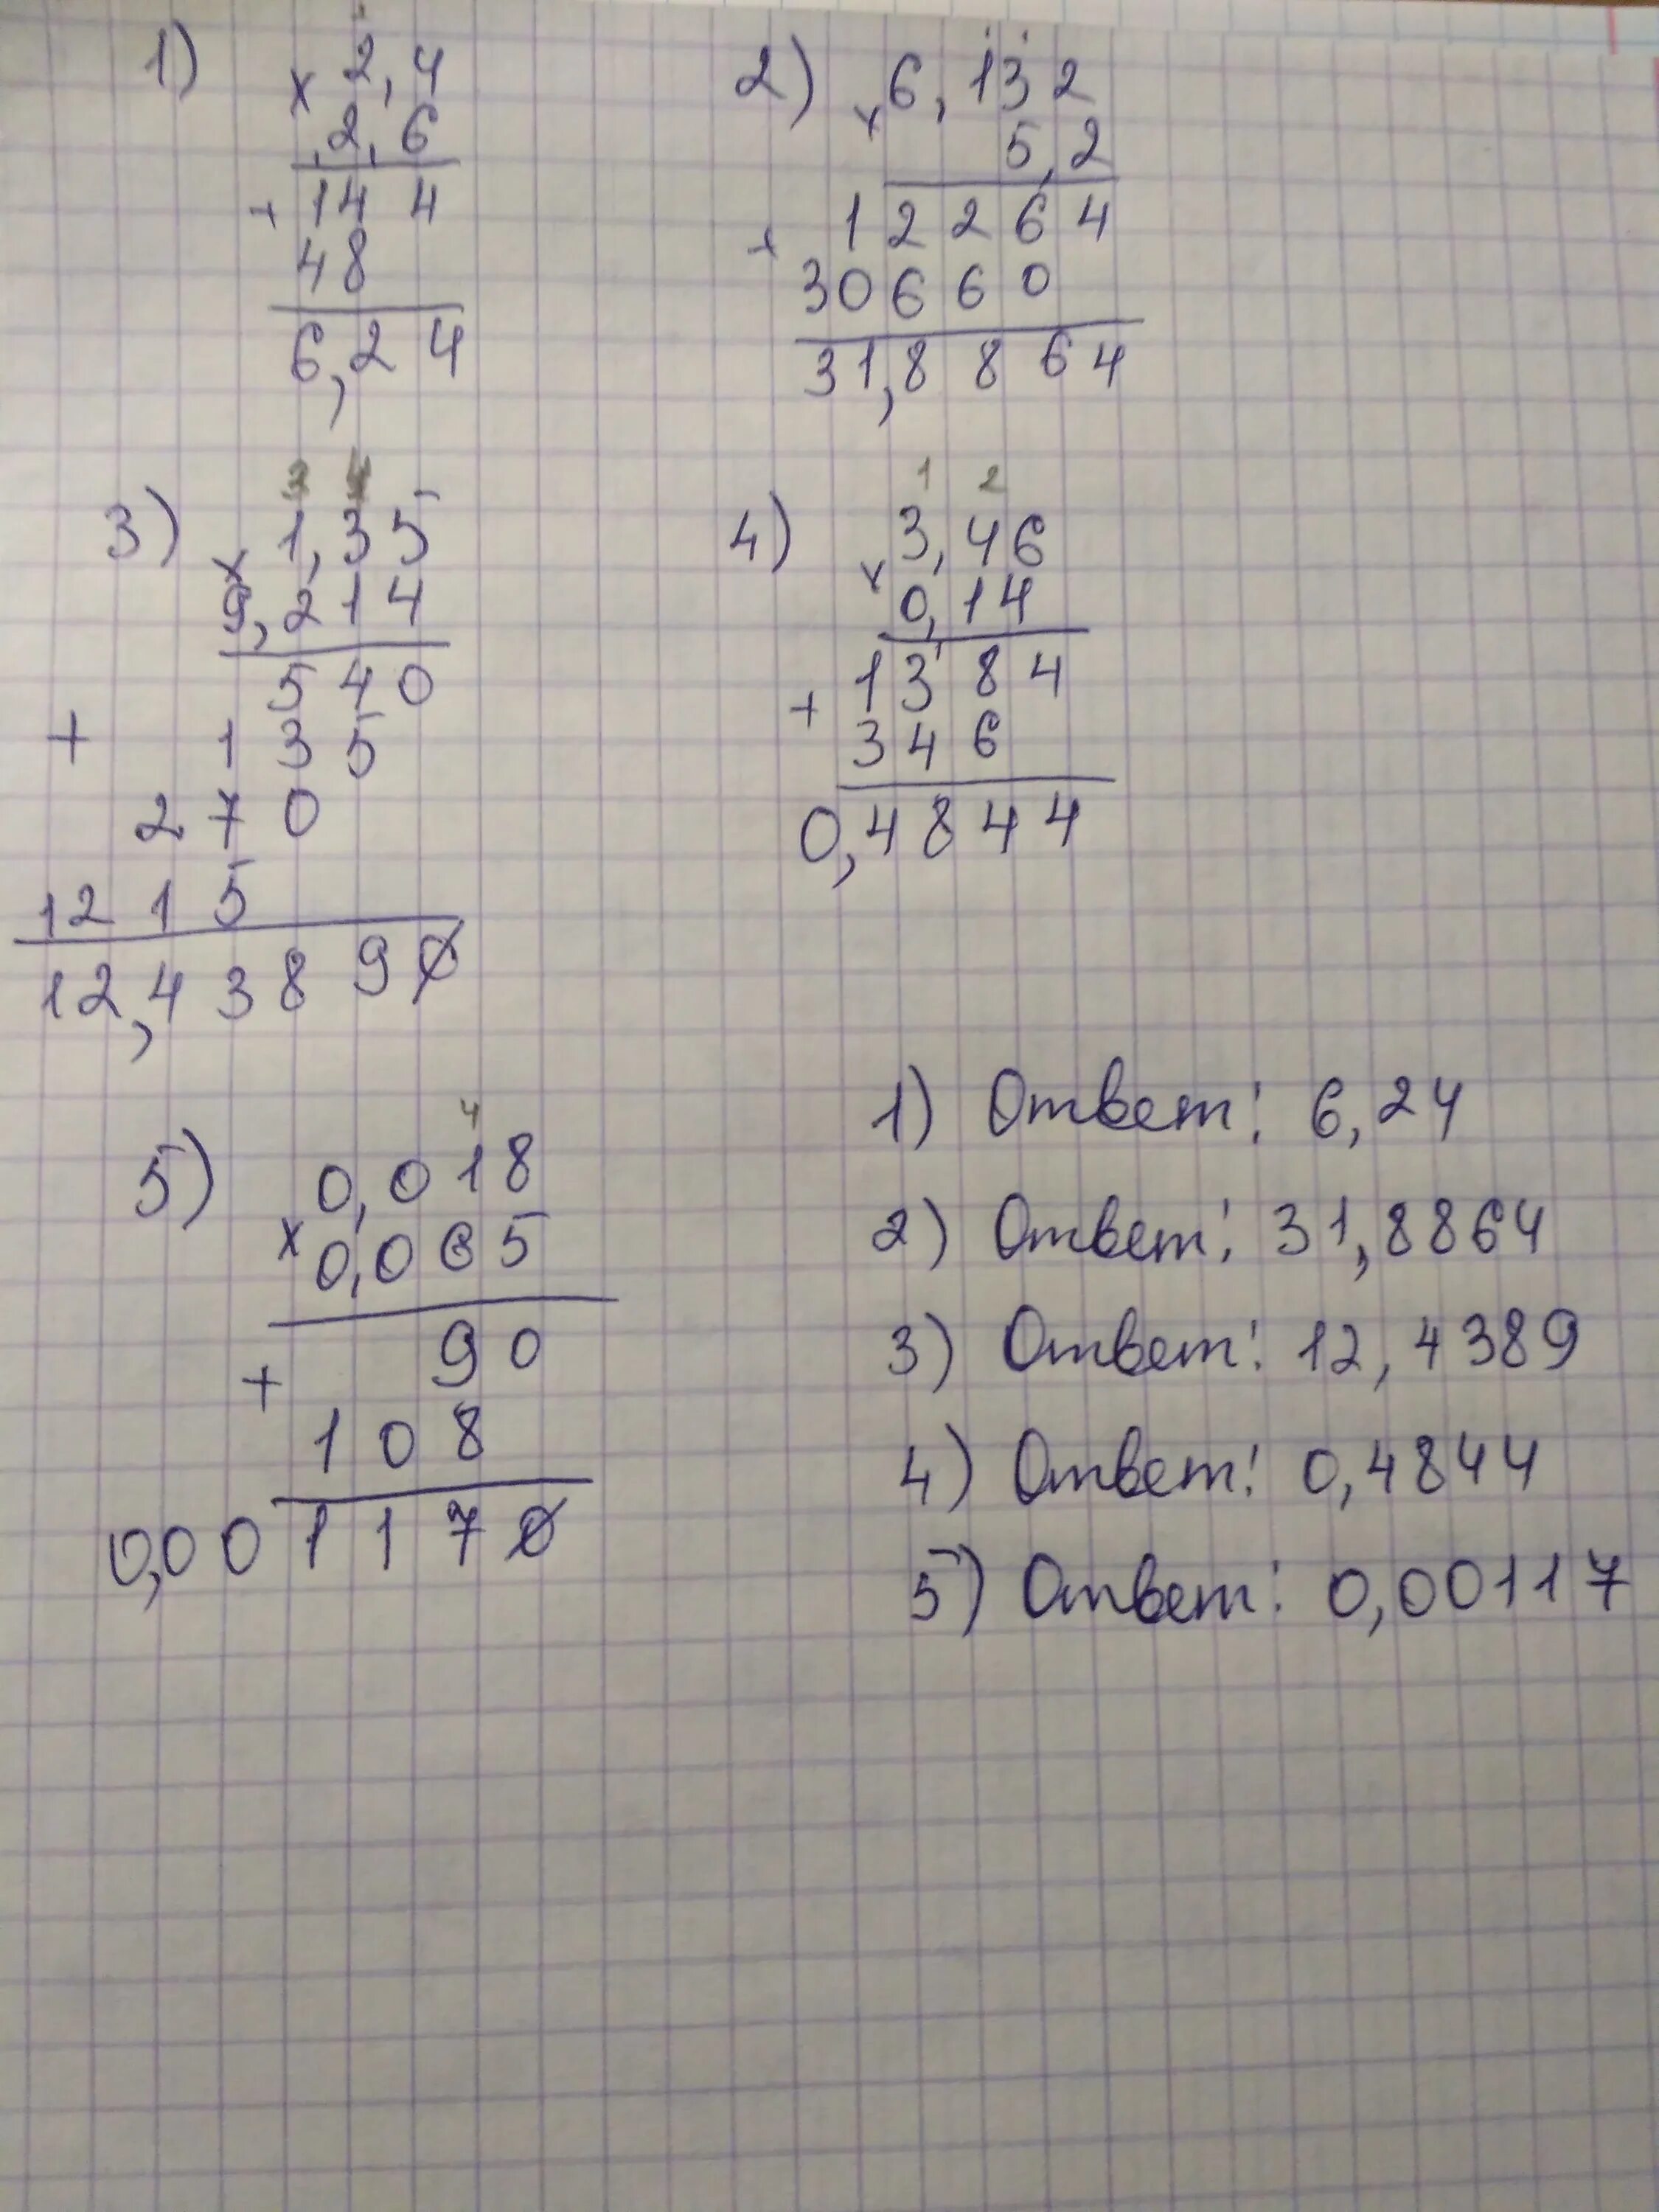 1)
× 2,4
2,6
+ 144
48
6,24
2)
× 6,132
5,2
+ 12264
30660
31,8864
3)
× 1,35
9,214
540
+ 135
270
1215
12,43890
4)
1 2
× 3,46
0,14
+ 1384
346
0,4844
5)
4
0,018
× 0,065
90
+
108
0,001170
1) Ответ: 6,24
2) Ответ: 31,8864
3) Ответ: 12,4389
4) Ответ: 0,4844
5) Ответ: 0,00117